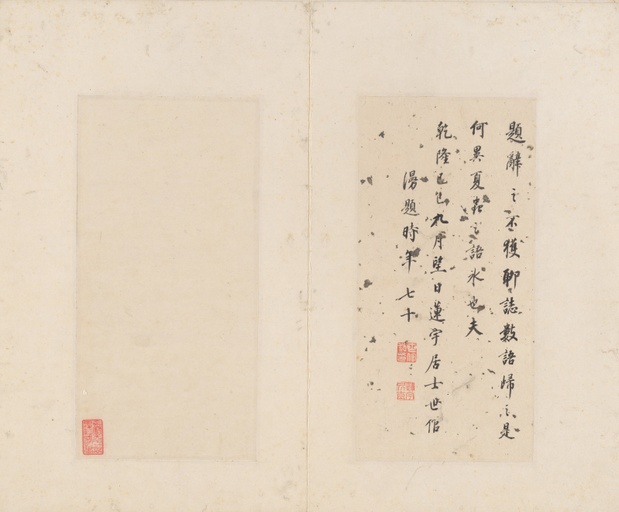 題辭之不獲聊誌數語歸之是
何異夏蟲之語氷也夫
乾隆己巳九月望日蓮宇居士世倌
漫題時年七十